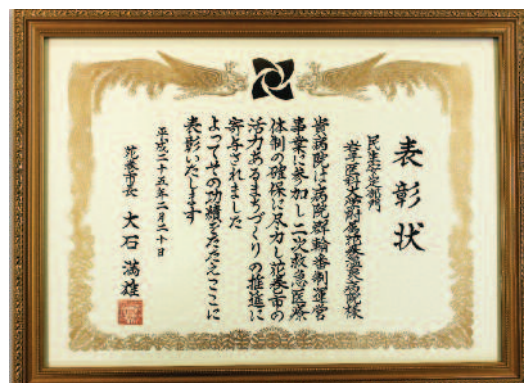 表彰状
民生安定部門
岩手医科大学附属花巻温泉病院様
貴病院は病院群輪番制運営
事業に参加し二次救急医療
体制の確保に尽力し花巻市の
活力あるまちづくりの推進に
寄与されました
よってその功績をたたえここに
表彰いたします
平成二十五年二月二十日
花巻市長 大石満雄